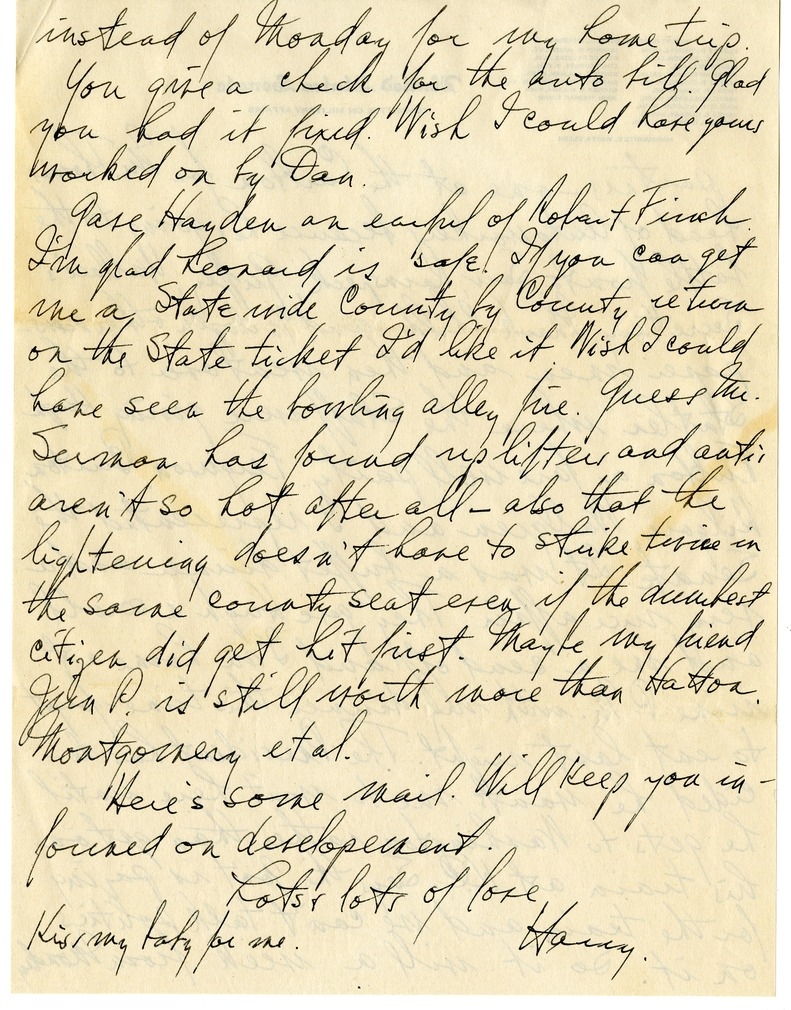 instead of Monday for my home trip.
You give a check for the auto bill. Glad
you had it fixed. Wish I could have yours
worked on by Dan.
Gave Hayden an earful of Robert Finch.
I'm glad Leonard is safe. If you can get
me a State wide County by County return
on the State ticket I'd like it. Wish I could
have seen the bowling alley fire. Guess Mr.
Sermon has found uplifters and antis
aren't so hot after all - also that the
lightening doesn't have to strike twice in
the same county seat even if the dumbest
citizen did get hit first. Maybe my friend
Jim P. is still worth more than Hatton,
Montgomery et al.
Here's some mail. Will keep you in-
formed on developement.
Lots & lots of love
Kiss my baby for me. Harry.